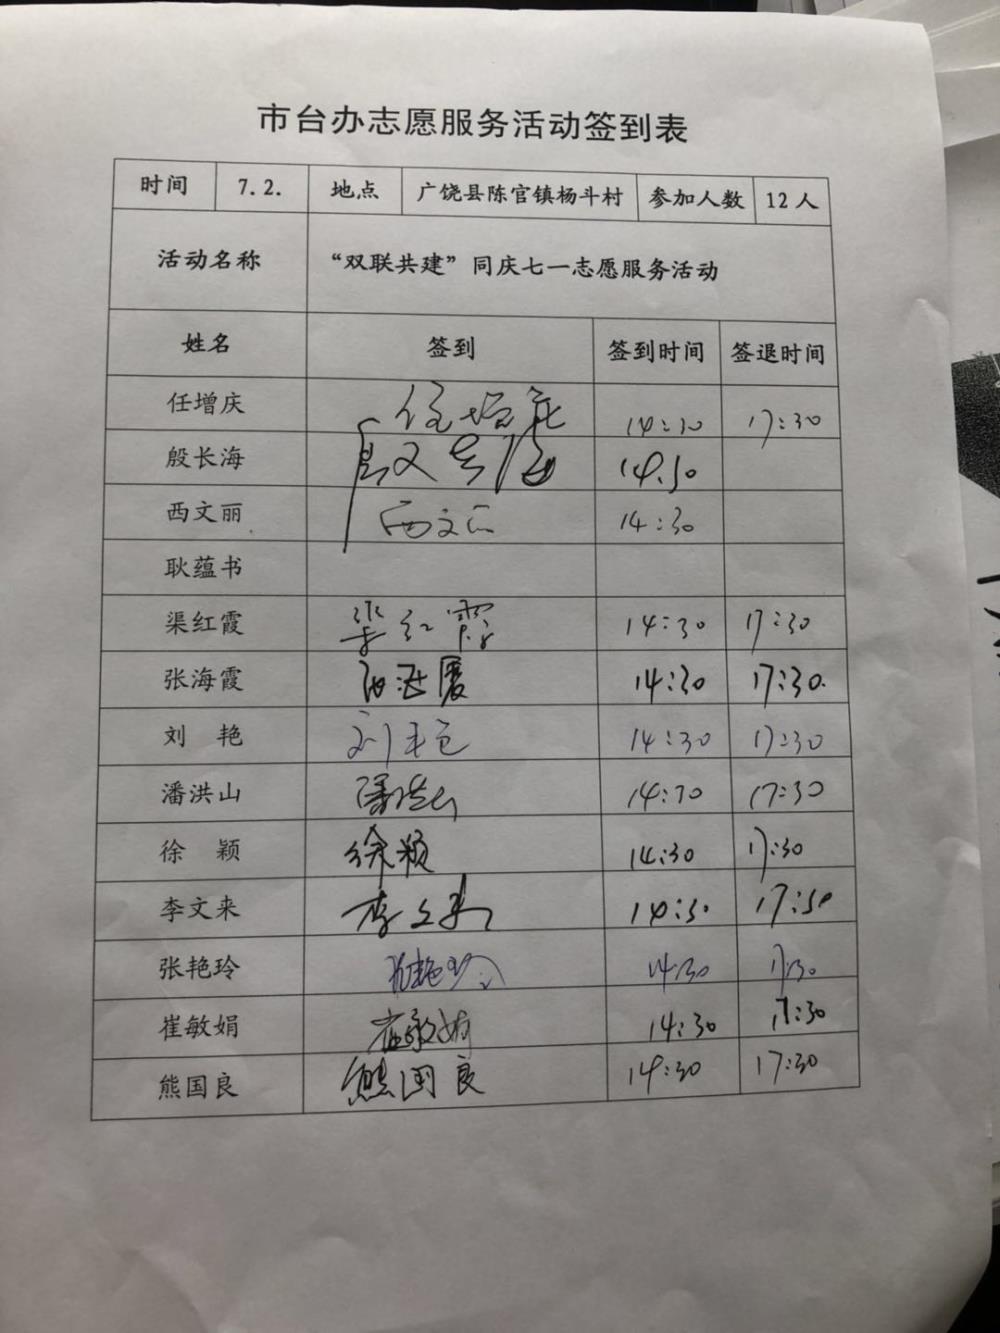 市台办志愿服务活动签到表
时间 7.2. 地点 广饶县陈官镇杨斗村 参加人数 12人
活动名称 “双联共建”同庆七一志愿服务活动
姓名 签到 签到时间 签退时间
任增庆 任增庆 14:30 17:30
殷长海 14:30
西文丽 西文丽 14:30
耿蕴书
渠红霞 渠红霞 14:30 17:30
张海霞 张海霞 14:30 17:30.
刘 艳 刘艳 14:30 17:30
潘洪山 潘洪山 14:30 17:30
徐 颖 徐颖 14:30 17:30
李文来 李文来 14:30 17:30
张艳玲 张艳玲 14:30 17:30
崔敏娟 崔敏娟 14:30 17:30
熊国良 熊国良 14:30 17:30